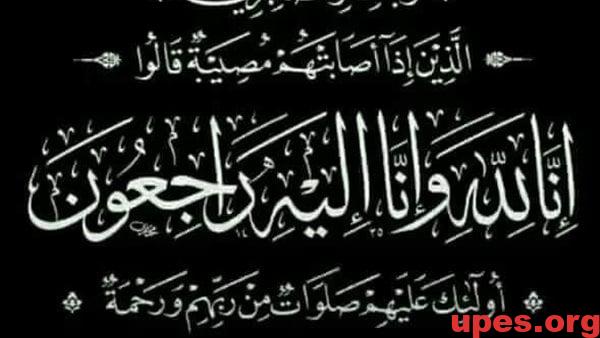 الَّذِينَ إِذَا أَصَابَتْهُمْ مُصِيبَةٌ قَالُوا
إِنَّا لِلَّهِ وَإِنَّا إِلَيْهِ رَاجِعُونَ
أُولَٰئِكَ عَلَيْهِمْ صَلَوَاتٌ مِنْ رَبِّهِمْ وَرَحْمَةٌ
upes.org